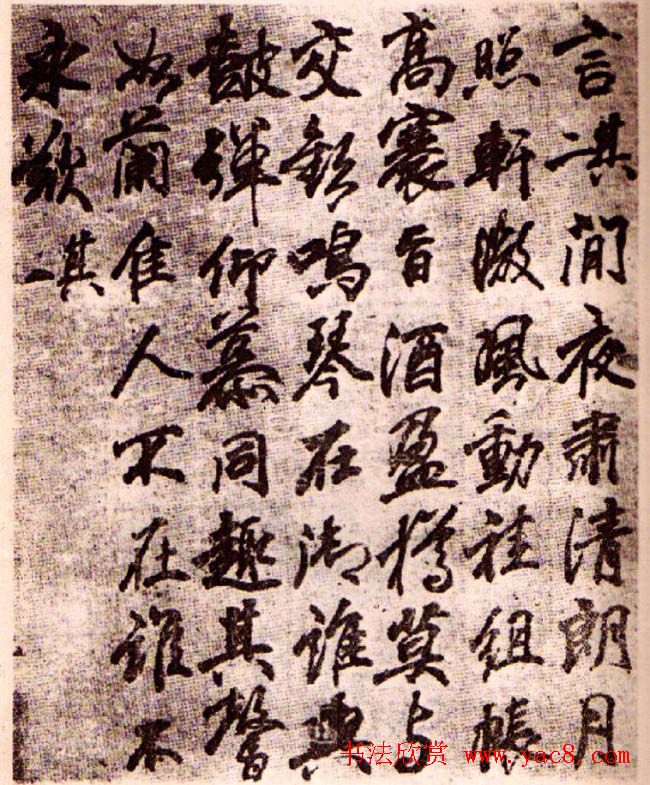 言其一閒夜肅清朗月
照軒微風動袿組帳
高褰旨酒盈樽莫与
交歡鳴琴在御誰與
鼓彈仰慕同趣其馨
如蘭佳人不在誰不
永歎其一
书法欣赏 www.yac8.com